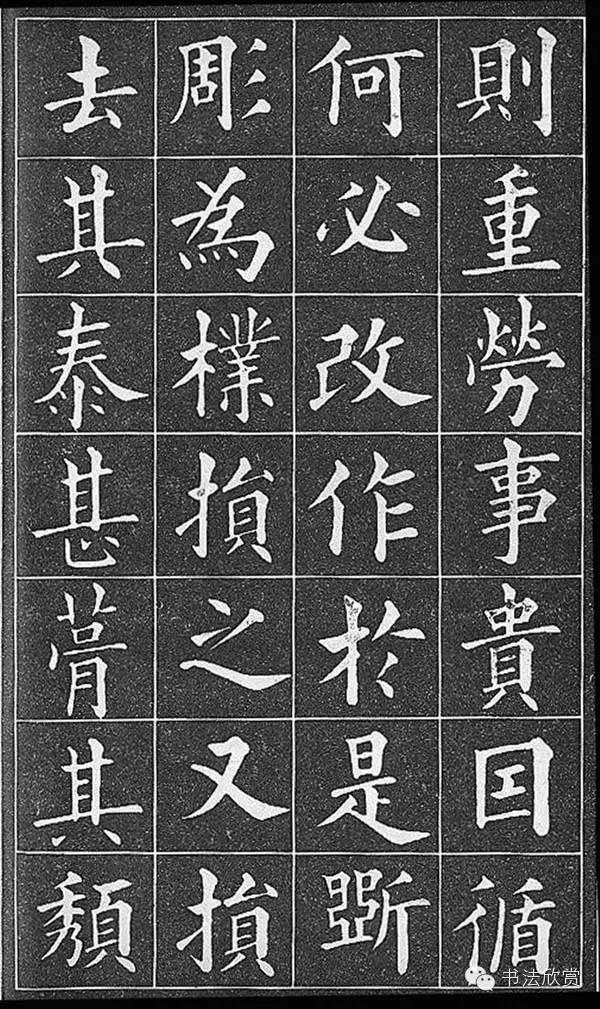 則重勞事貴囙循
何必改作於是斲
彫為樸損之又損
去其泰甚葺其頹
书法欣赏